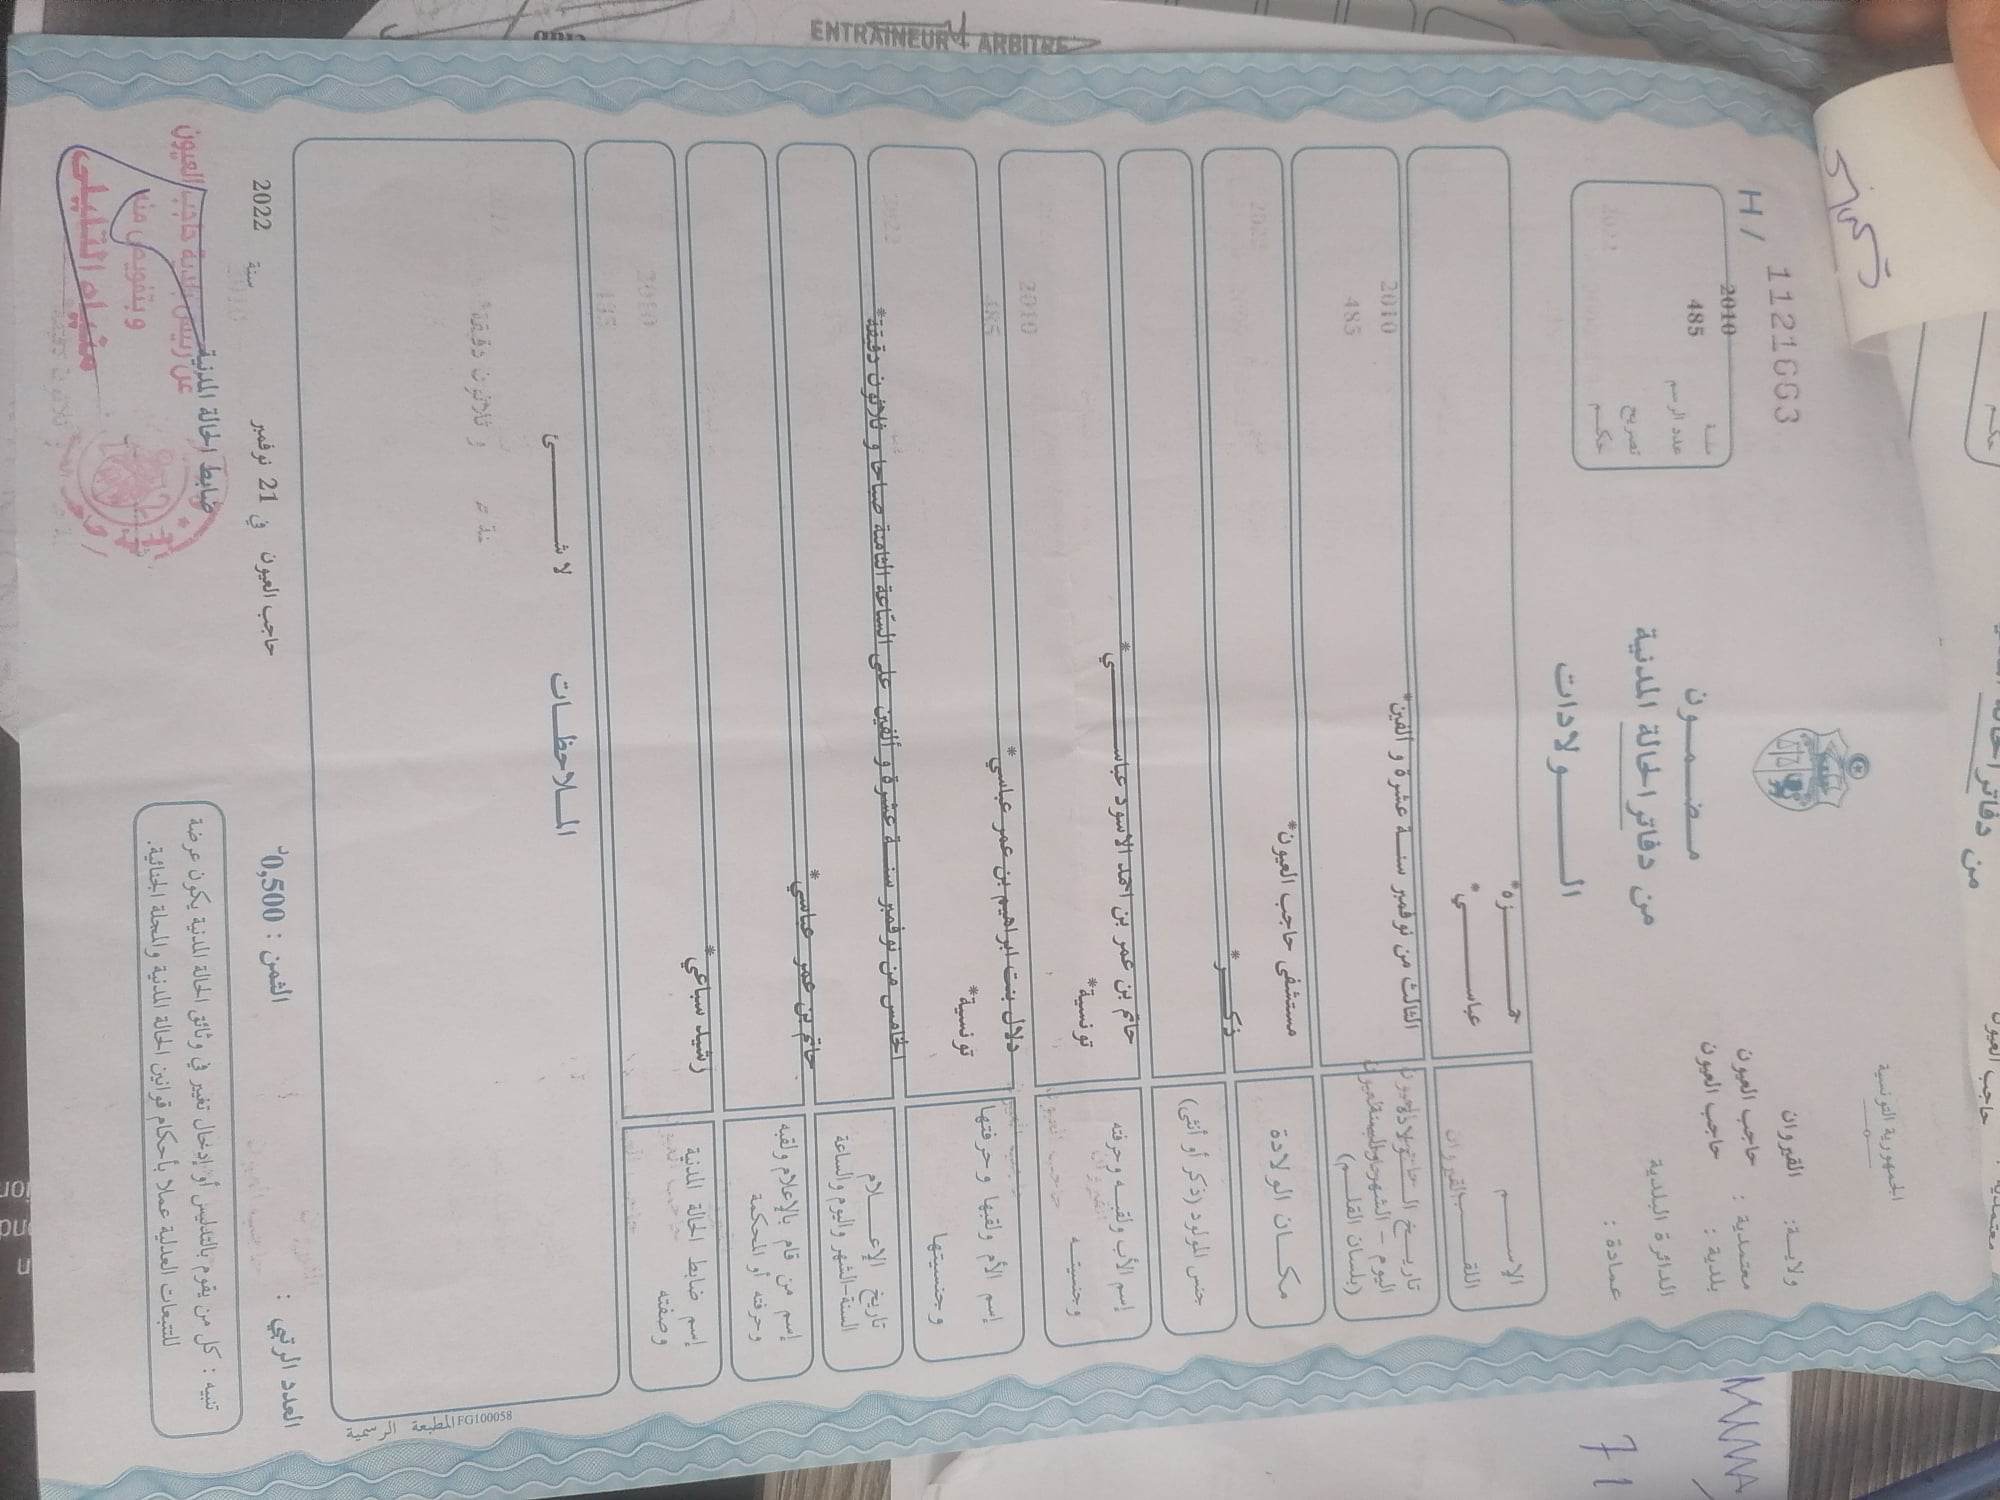 ENTRAINEUR ARBITRE
الجمهورية التونسية
ولاية: القيروان
معتمدية : حاجب العيون
بلدية : حاجب العيون
الدائرة البلدية
عمادة :
H/ 1121663
سنة 2010
عدد الرسم 485
تصريح
حكم
مضمون
من دفاتر الحالة المدنية
الولادات
الإسم حمزة*
اللقب عباسي*
تاريخ الولادة
اليوم - الشهر والسنة
(بلسان القلم)
الثالث من نوفمبر سنة عشرة و الفين*
مكان الولادة مستشفى حاجب العيون*
جنس المولود (ذكر أو أنثى) ذكر*
إسم الأب ولقبه وحرفته
وجنسيته
حاتم بن عمر بن احمد الاسود عباسي*
تونسية*
إسم الأم ولقبها وحرفتها
وجنسيتها
دلال بنت ابراهيم بن عمر عباسي*
تونسية*
تاريخ الإعلام
السنة-الشهر واليوم والساعة
الخامس من نوفمبر سنة عشرة و ألفين على الساعة الثامنة صباحا و ثلاثون دقيقة*
إسم من قام بالإعلام ولقبه
وحرفته أو المحكمة
حاتم بن عمر عباسي*
إسم ضابط الحالة المدنية
وصفته
رشيد سباعي*
الملاحظات
لا شئ
FG100058 المطبعة الرسمية
العدد الرتبي :
الثمن : 0,500د
حاجب العيون في 21 نوفمبر سنة 2022
ضابط الحالة المدنية
عن رئيس بلدية حاجب العيون
وبتفويض منه
تنبيه : كل من يقوم بالتدليس أو إدخال تغيير في وثائق الحالة المدنية يكون عرضة
للتتبعات العدلية عملا بأحكام قوانين الحالة المدنية والمجلة الجنائية.
71